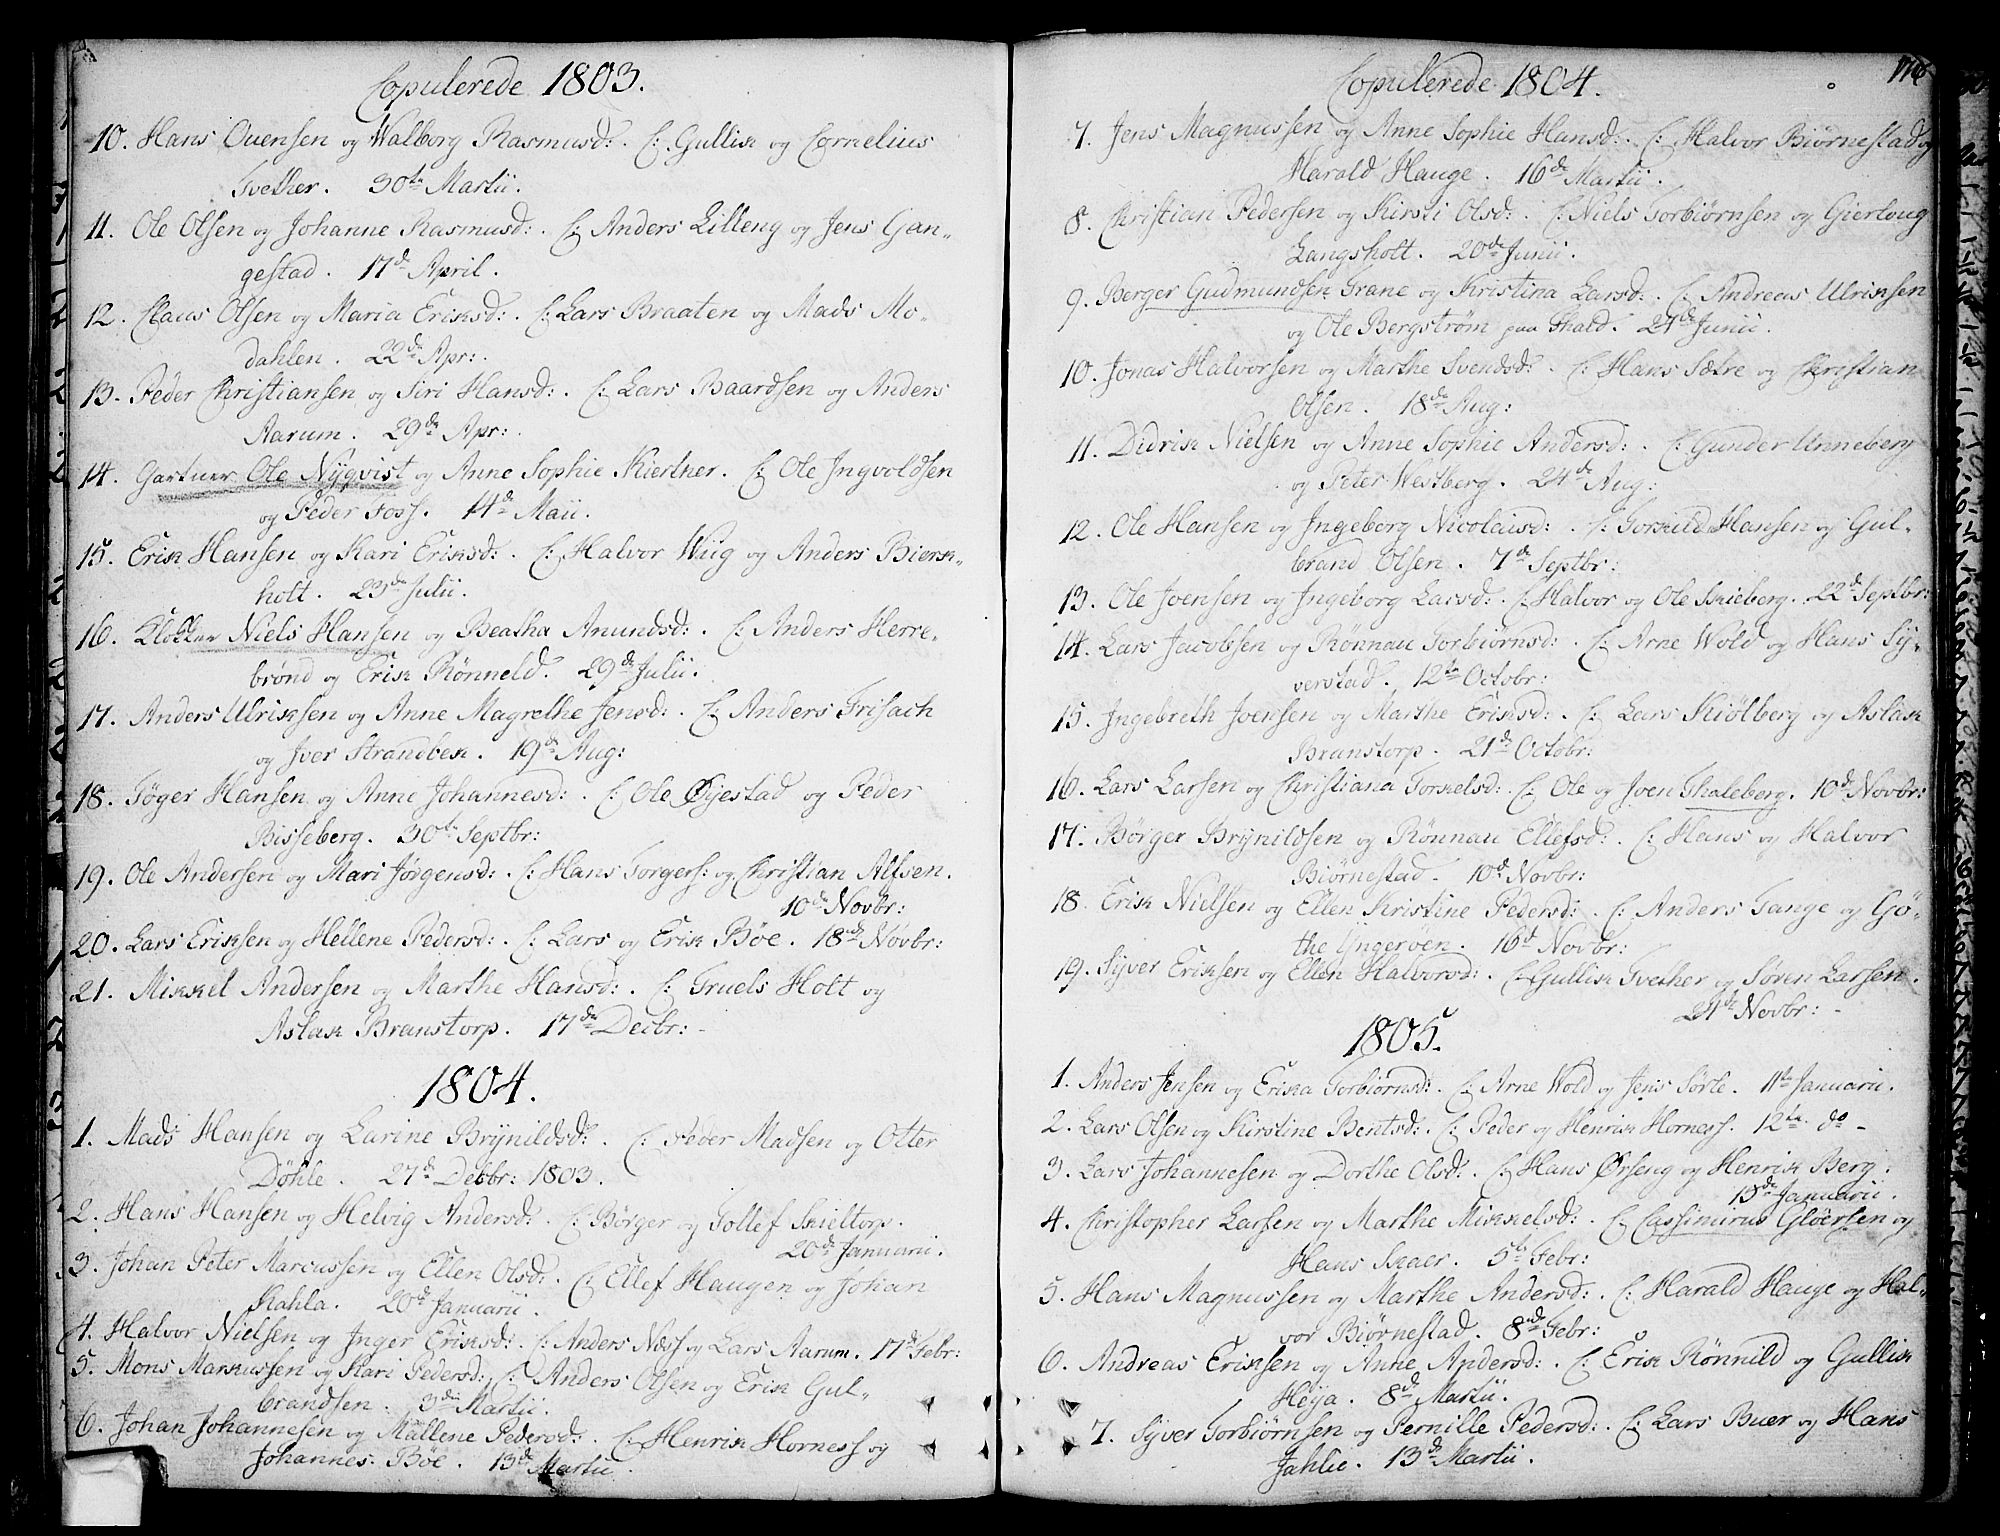 Copulerede 1803.
10. Hans Ouensen og Walborg Rasmusd: . C: Gullik og Cornelius
Tvether. 30te Martii.
11. Ole Olsen og Johanne Rasmusd: . C: Anders Lilleng og Jens Gan-
gestad. 17de April.
12. Claus Olsen og Maria Eriksd: . C: Lars Braaten og Mads Mo-
dahlen. 22de Apr:.
13. Peder Christiansen og Siri Hansd: . C: Lars Baardsen og Anders
Aarum. 29de Apr:.
14. Gartner Ole Nyqvist og Anne Sophie Kiertner. C: Ole Ingvoldsen
og Peder Foss. 14de Maii.
15. Erik Hansen og Kari Eriksd: . C: Halvor Wiig og Anders Bierk-
holt. 23de Julii.
16. Klokker Niels Hansen og Beatha Amundsd: . C: Anders Herre-
brønd og Erik Rønneld. 29de Julii.
17. Anders Ulriksen og Anne Magrethe Jensd: . C: Anders Frisach
og Iver Strandbek. 19de Aug:
18. Tøger Hansen og Anne Johannesd: . C: Ole Øyestad og Peder
Bisseberg. 30te Septbr:
19. Ole Andersen og Mari Jørgensd: . C: Hans Torgers: og Christian Alfsen.
10de Novbr:
20. Lars Eriksen og Hellene Pedersd: . C: Lars og Erik Bøe. 18de Novbr:
21. Mikkel Andersen og Marthe Hansd: . C: Truels Holt og
Aslak Branstorp. 17de Decbr: -
1804.
1. Mads Hansen og Larine Brynildsd: . C: Peder Madsen og Otter
Døhle. 27de Decbr: 1803.
2. Hans Hansen og Helvig Andersd: . C: Børger og Tollef Skieltorp.
20de Januarii.
3. Johan Peter Marcussen og Ellen Olsd: . C: Ellef Haugen og Johan
Kahla. 20de Januarii.
4. Halvor Nielsen og Inger Eriksd: . C: Anders Næss og Lars Aarum. 17de Febr:
5. Mons Markussen og Kari Pedersd: . C: Anders Olsen og Erik Gul-
brandsen. 3die Martii.
6. Johan Johannesen og Mallene Pedersd: . C: Henrik Horness og
Johannes Bøe. 13de Martii.
Copulerede 1804.
7. Jens Magnussen og Anne Sophie Hansd: . C: Halvor Biørnestad og
Harald Hauge. 16de Martii.
8. Christian Pedersen og Kirsti Olsd: . C: Niels Torbiørnsen og Gierloug
Langsholt. 20de Junii.
9. Berger Gudmundsen Trane og Kristina Larsd: . C: Andreas Ulriksen
og Ole Bergstrøm paa Hald. 21de Junii.
10. Jonas Halvorsen og Marthe Svendsd: . C: Hans Sætre og Christian
Olsen. 18de Aug:
11. Didrik Nielsen og Anne Sophie Andersd: . C: Gunder Unneberg
og Peter Westberg. 24de Aug:
12. Ole Hansen og Ingeborg Nicolaisd: . C: Torkild Hansen og Gul-
brand Olsen. 7de Septbr:
13. Ole Joensen og Ingeborg Larsd: . C: Halvor og Ole Skieberg. 22de Septbr:
14. Lars Jacobsen og Rønnau Torbiørnsd: . C: Arne Wold og Hans Sy-
verstad. 12te Octobr:
15. Ingebreth Joensen og Marthe Eriksd: . C: Lars Kiølberg og Aslak
Branstorp. 21de Octobr:
16. Lars Larsen og Christiana Torkelsd: . C: Ole og Joen Thaleberg. 10de Novbr:
17. Børger Brynildsen og Rønnau Ellefsd: . C: Hans og Halvor
Biørnestad. 10de Novbr:
18. Erik Nielsen og Ellen Kristine Pedersd: . C: Anders Tange og Gø-
the Yngerøen. 16de Novbr:
19. Syver Eriksen og Ellen Halvorsd: . C: Gullik Tvether og Søren Larsen.
24de Novbr: -
1805.
1. Anders Jensen og Erika Torbiørnsd: . C: Arne Wold og Jens Sørle. 11te Januarii.
2. Lars Olsen og Kirstine Bentsd: . C: Peder og Henrik Horness. 12te do -
3. Lars Johannesen og Dorthe Olsd: . C: Hans Ørseng og Henrik Berg.
15de Januarii.
4. Christopher Larsen og Marthe Mikkelsd: . C: Cassimirus Gløersen og
Hans Skaer. 5te Febr:
5. Hans Magnussen og Marthe Andersd: . C: Harald Hauge og Hal-
vor Biørnestad. 8de Febr:
6. Andreas Eriksen og Anne Andersd: . C: Erik Rønnild og Gullik
Heya. 8de Martii.
7. Syver Torbiørnsen og Pernille Pedersd: . C: Lars Buer og Hans
Jahlie. 13de Martii.